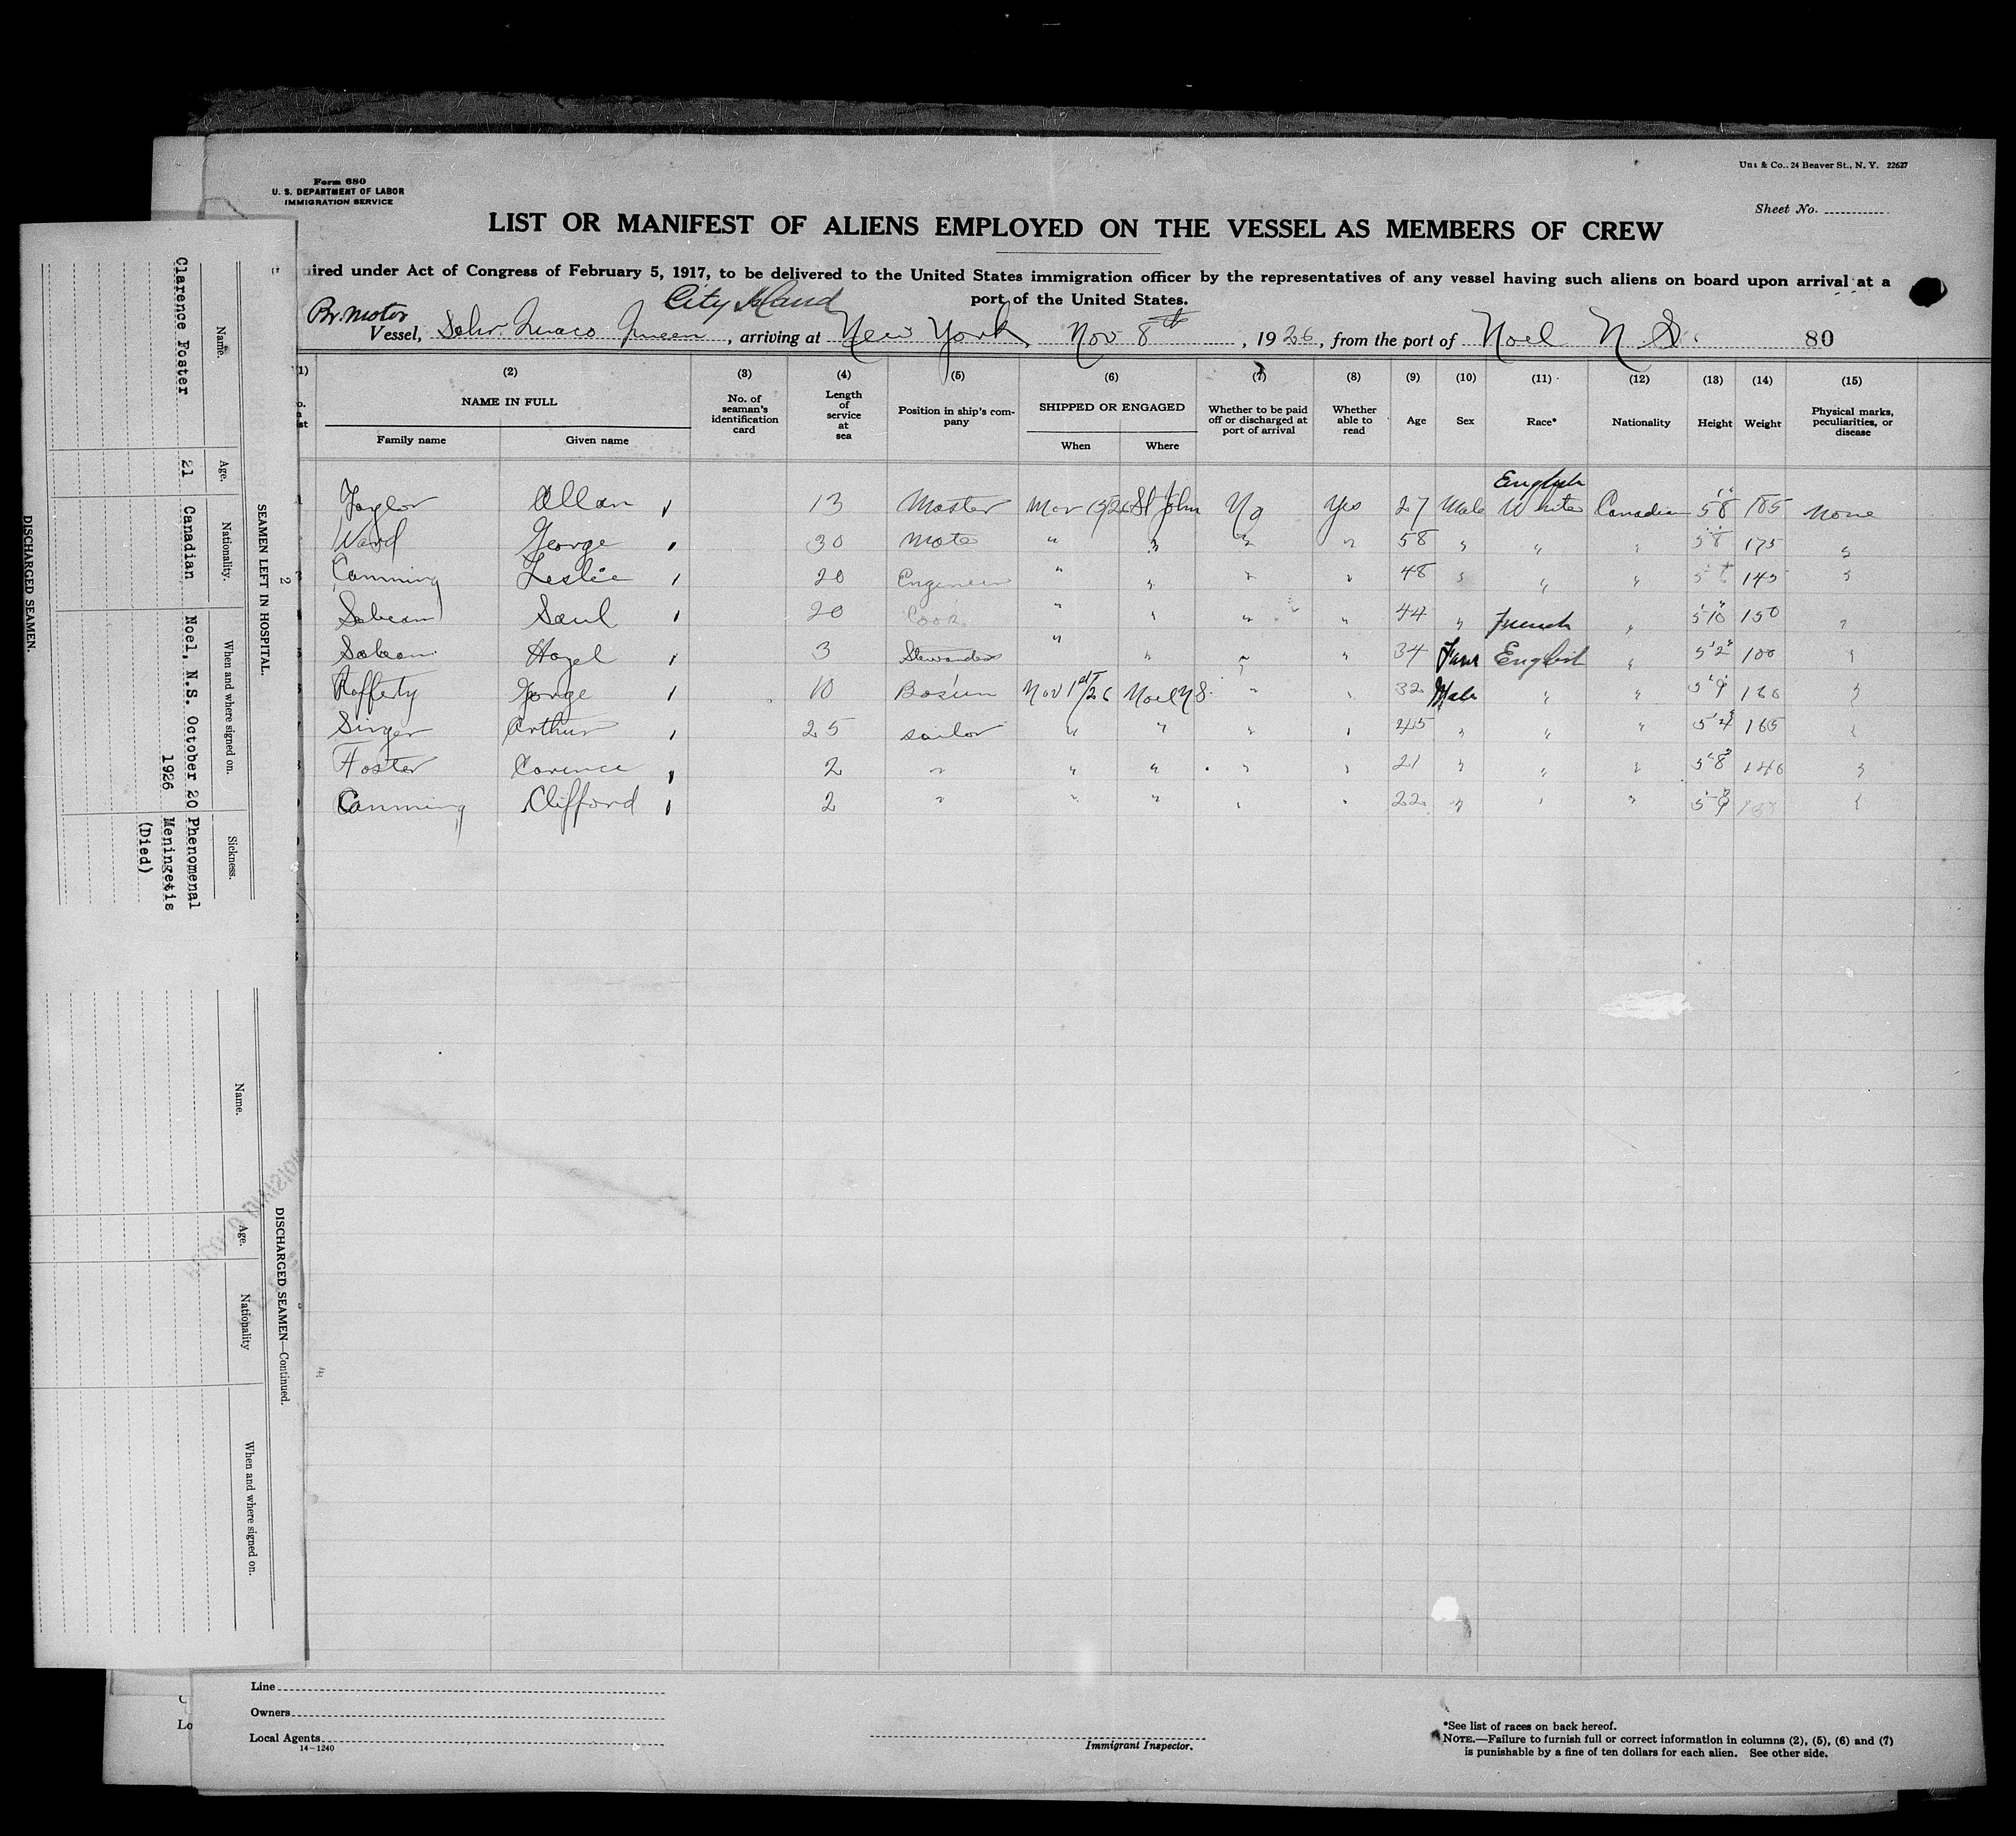 Form 680
U. S. DEPARTMENT OF LABOR
IMMIGRATION SERVICE
& Co., 24 Beaver St., N. Y. 22627
Sheet No.
LIST OR MANIFEST OF ALIENS EMPLOYED ON THE VESSEL AS MEMBERS OF CREW
uired under Act of Congress of February 5, 1917, to be delivered to the United States immigration officer by the representatives of any vessel having such aliens on board upon arrival at a
port of the United States.
Br. Motor City Island
Vessel, Schr. Quaco Queen, arriving at New York Nov 8th, 1926, from the port of Noel N S. 80
(1) (2) (3) (4) (5) (6) (7) (8) (9) (10) (11) (12) (13) (14) (15)
NAME IN FULL
Family name Given name
No. of seaman's identification card
Length of service at sea
Position in ship's company
SHIPPED OR ENGAGED
When Where
Whether to be paid off or discharged at port of arrival
Whether able to read
Age Sex Race* Nationality Height Weight
Physical marks, peculiarities, or disease
English
Taylor Allan 13 Master Mar 13/26 St John No Yes 27 Male White Canadian 5'8" 185 None
Ward George 30 Mate " " " " 58 " " " 5'8" 175 "
Canning Leslie 20 Engineer " " " " 48 " " " 145 "
Sabean Saul 20 Cook " " " " 44 " French " 5'10" 150 "
Sabean Hazel 3 Stewardess " " " " 34 Fem English " 5'2" 100 "
Rafferty George 10 Bos'un Nov 1st/26 Noel N S. " " 32 Male " " 5'9" "
Singer Arthur 25 sailor " " " " 45 " " " 5'4" 165 "
Foster Clarence 2 " " " " " 21 " " " 5'8" 140 "
Canning Clifford 2 " " " " " 22 " " " 5'9" "
Line
Owners
Local Agents
14-1240
Immigrant Inspector.
*See list of races on back hereof.
NOTE.—Failure to furnish full or correct information in columns (2), (5), (6) and (7)
is punishable by a fine of ten dollars for each alien. See other side.
2
SEAMEN LEFT IN HOSPITAL.
Name. Age. Nationality. When and where signed on. Sickness.
Clarence Foster 21 Canadian Noel, N.S. October 20 Phenomenal
1926 Meningetis
(Died)
DISCHARGED SEAMEN.
DISCHARGED SEAMEN—Continued.
Name. Age. Nationality When and where signed on.